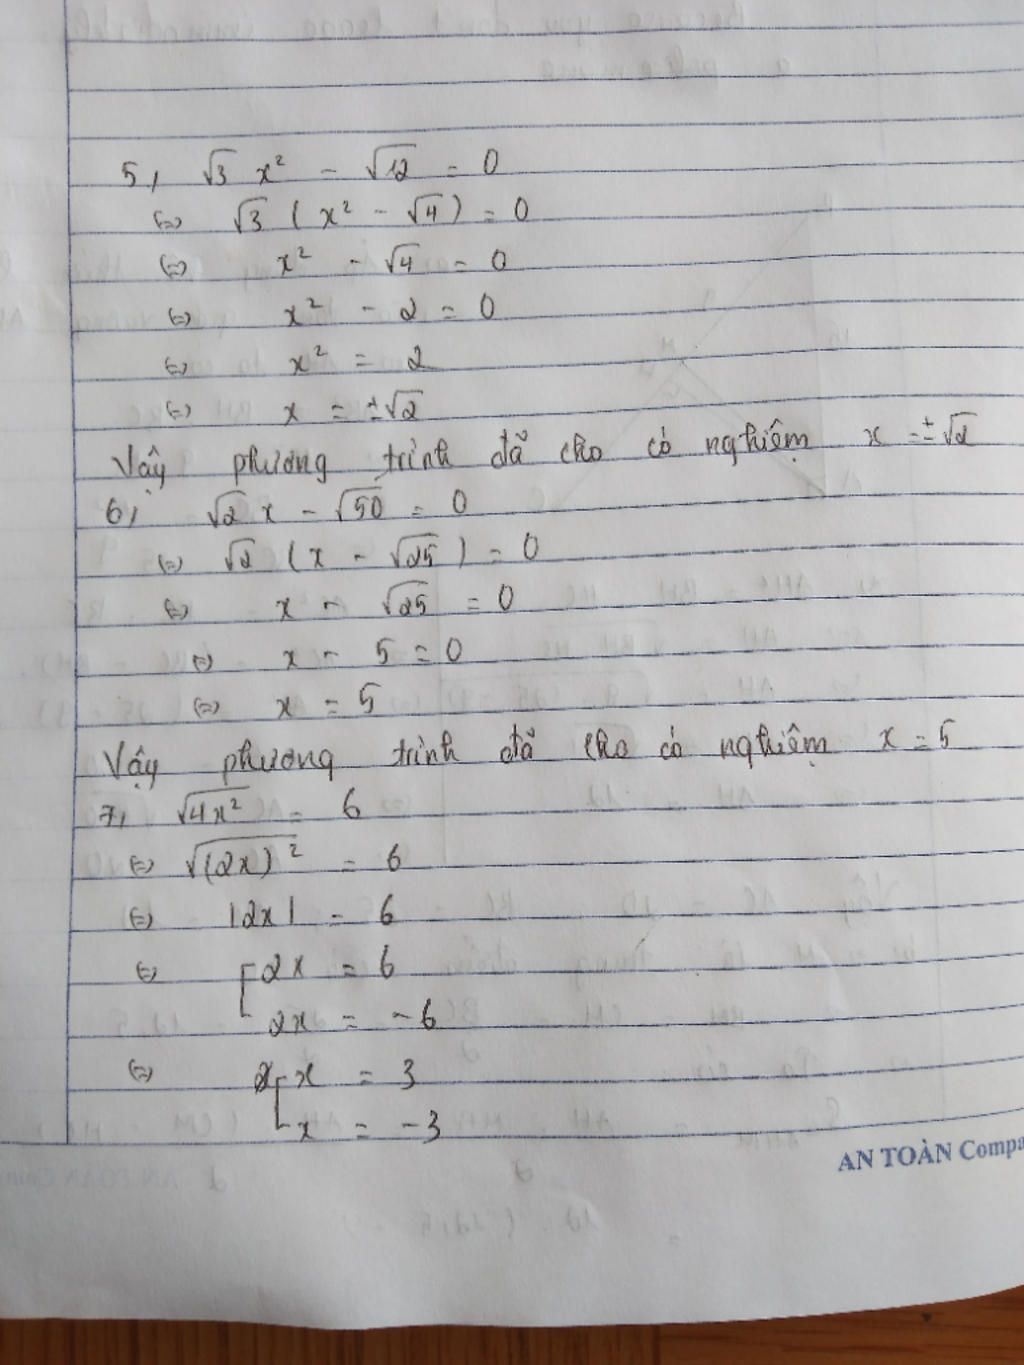 5, √3 x² - √12 = 0
(=) √3 ( x² - √4 ) = 0
(=) x² - √4 = 0
(=) x² - 2 = 0
(=) x² = 2
(=) x = ±√2
Vậy phương trình đã cho có nghiệm x = ±√2
6, √2 x - √50 = 0
(=) √2 ( x - √25 ) = 0
(=) x - √25 = 0
(=) x - 5 = 0
(=) x = 5
Vậy phương trình đã cho có nghiệm x = 5
7, √4x² = 6
(=) √(2x)² = 6
(=) |2x| = 6
(=) [ 2x = 6
2x = -6
(=) [ x = 3
x = -3
AN TOÀN